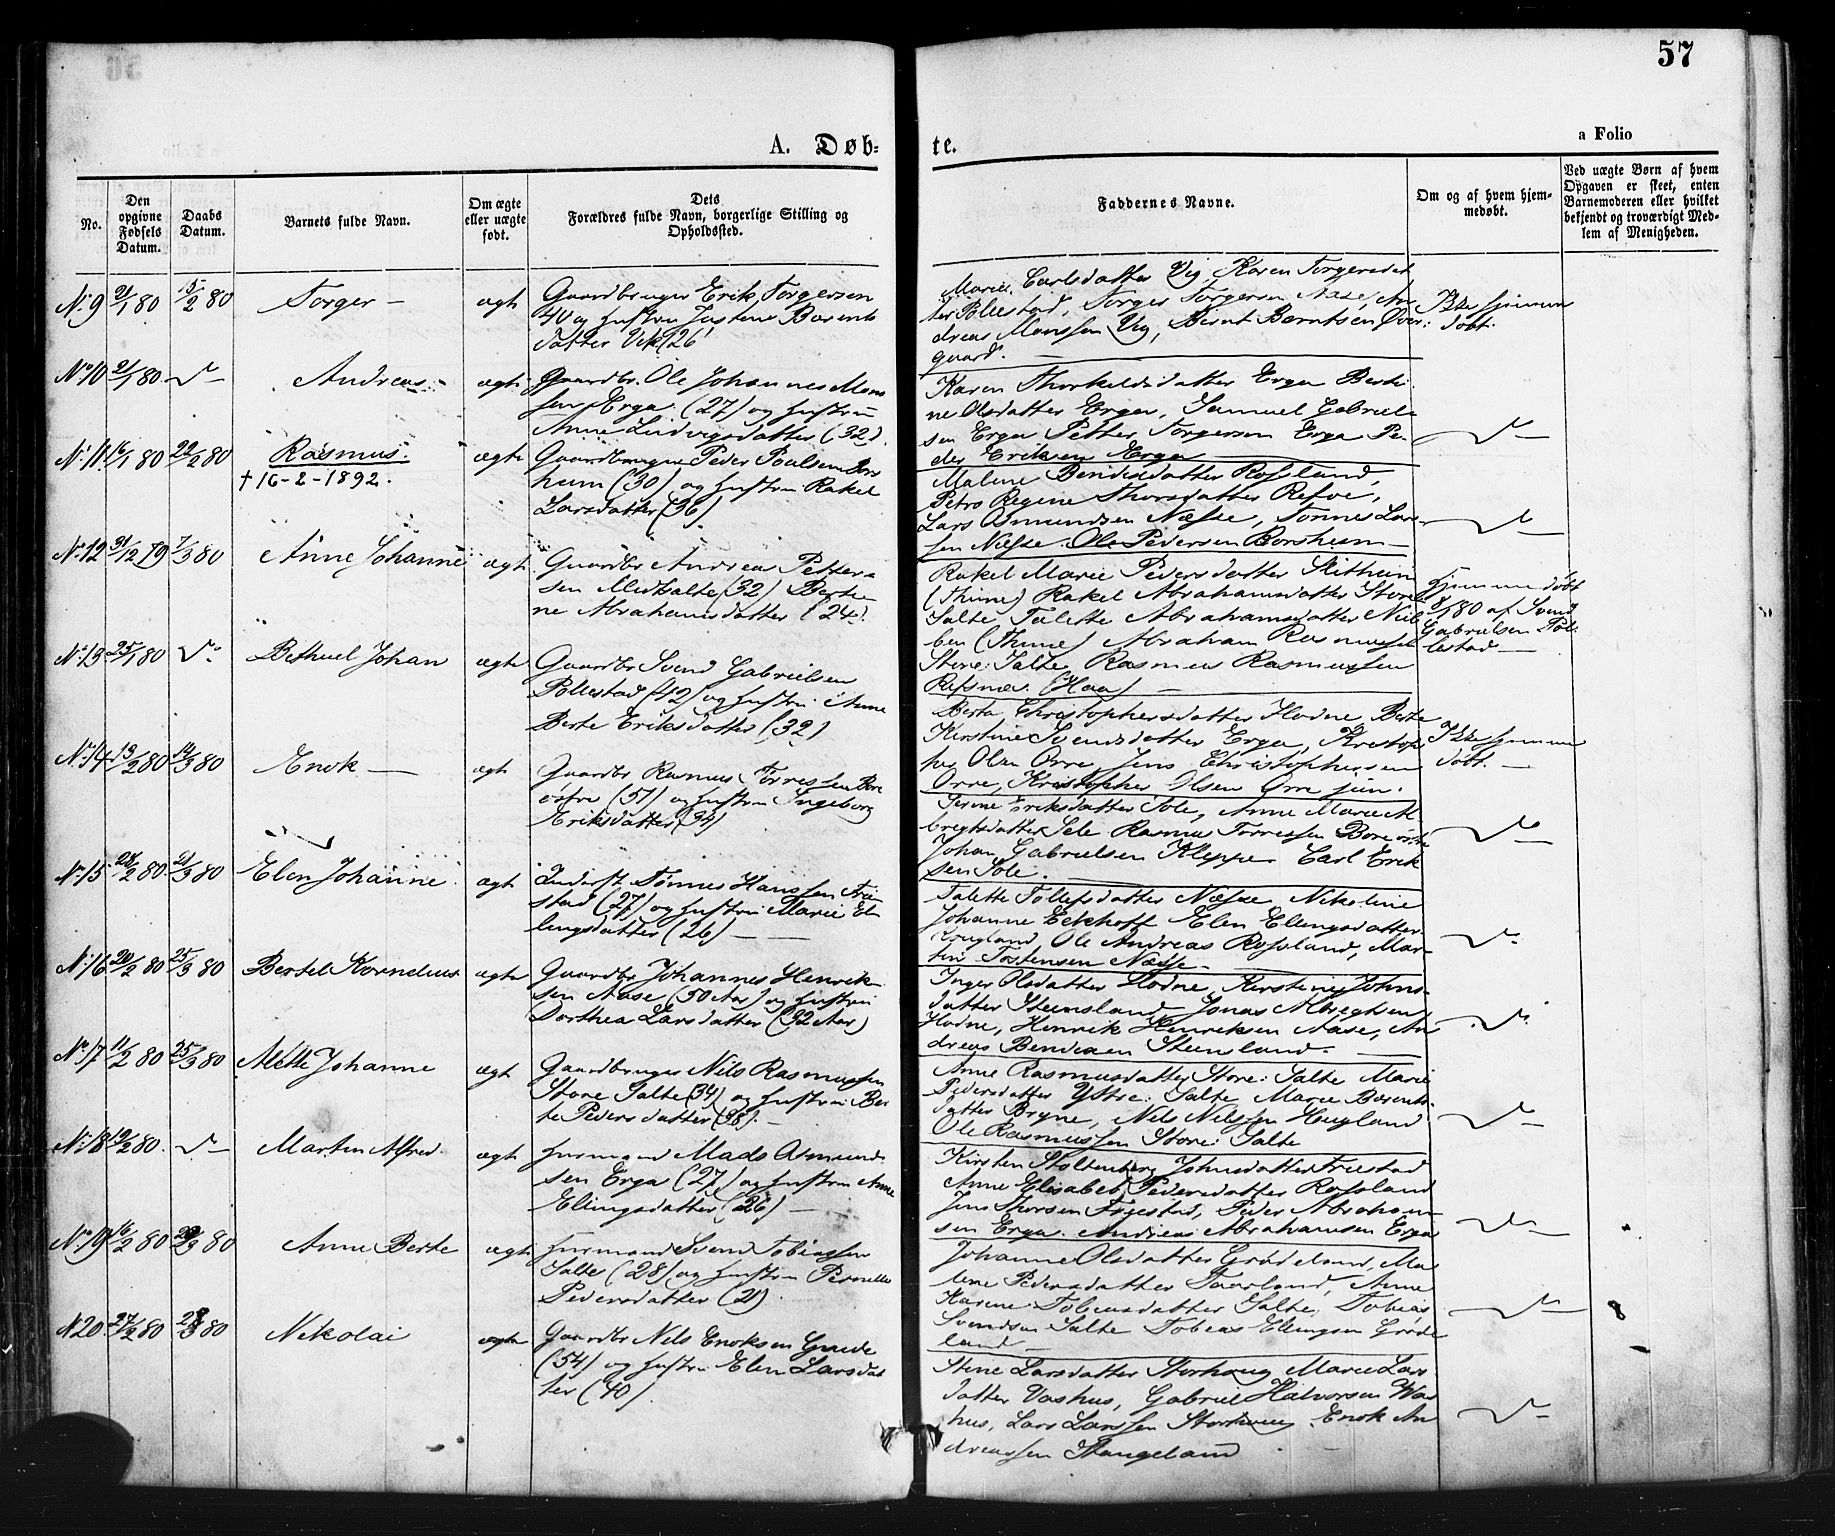 57
A. Døb-
te.
a Folio
No.
Den opgivne Fødsels Datum.
Daabs Datum.
Barnets fulde Navn.
Om ægte eller uægte født.
Dets Forældres fulde Navn, borgerlige Stilling og Opholdssted.
Faddernes Navne.
Om og af hvem hjemmedøbt.
Ved uægte Børn af hvem Opgaven er skeet, enten Barnemoderen eller hvilket bekjendt og troværdigt Medlem af Menigheden.
No 9 2/1 80 15/2 80 Torger - ægt
Gaardbruger Erik Torgersen
40 og hustru Justene Barents
datter Vik (26)
Marie Carlsdatter Vig, Karen Torgersdat
ter Pollestad, Torger Torgersen Aase, An
dreas Monssen Vig, Bernt Berntsen Over:
gaard.
Ikke hjemme
døbt.
No 10 2/1 80 Andreas - ægt
Gaardbr. Ole Johannes Mons
sen Erga (27) og hustru
Anne Ludvigsdatter (32).
Karen Thorkeldsdatter Erga Berti
ne Olsdatter Erga, Samuel Gabriel
sen Erga Petter Torgersen Erga Pe
der Eriksen Erga
No 11 16/1 80 22/2 80 Rasmus. ægte
+ 16-2-1892.
Gaardbruger Peder Poulsen Bors
heim (30) og hustru Rakel
Larsdatter (36)
Malene Bendicsdatter Rossland,
Petro Regine Thorsdatter Refve,
Lars Asmundsen Næsse, Tønnes Lar-
sen Næsse. Ole Pedersen Borsheim
No 12 31/12 79 7/3 80 Anne Johanne ægt
Gaardbr Andreas Petter-
sen Midtsalte (32) Berti
ne Abrahamsdatter (24).
Rakel Marie Pedersdatter
(Thime) Rakel Abrahamsdatter Store
Salte, Talette Abrahamsdatter
(Thime) Abraham Rasmussen
Store: Salte Rasmus Rasmussen
Refsnæs (Haa)
Hjemmedøbt
80 af Svend
Gabrielsen Pol
lestad
No 13 25/1 80 Bethuel Johan ægt
Gaardbr Svend Gabrielsen
Pollestad (42) og hustru Anne
Berte Eriksdatter (32)
Berta Christophersdatter Hodne Berte
Kirstine Svendsdatter Erga, Kristop
her Olsen Orre, Jens Christophersen
Orre, Kristopher Olsen Orre jun.
Ikke hjemme
døbt.
No 14 13/2 80 14/3 80 Enok - ægt
Gaardbr Rasmus Torressen Bore
østre (51) og hustru Ingeborg
Eriksdatter (39)
Serine Eriksdatter Sole, Anne Marie Al
bregtsdatter Sele Rasmus Torressen Bore østre
Johan Gabrielsen Kleppe Carl Erik
sen Sole.
No 15 28/2 80 21/3 80 Elen Johanne. ægt
Tønnes Hanssen Frø
stad (27) og hustru Marie El
lingsdatter (26)
Talette Tollefsdatter Næsse Nikoline
Johanne Eckhoff Elen Elingsdatter
Ole Andreas Rossland, Mar-
tin Tostensen Næsse
No 16 20/2 80 25/3 80 Bertel Kornelius ægt
Gaardbr Johannes Henrik
sen Aase (50 Aar) og hustru
Dorthea Larsdatter (32 Aar)
Inger Olsdatter Hodne, Kirstine Johns
datter Steensland Jonas Albregtsen
Hodne, Henrik Henriksen Aase, An
dreas Bendixen Steensland.
No 17 11/2 80 25/3 80 Alette Johanne ægt
Gaardbruger Nils Rasmussen
Store Salte (34) og hustru Ber
te Pedersdatter (38).
Anne Rasmusdatter Store: Salte Marie
Pedersdatter Yttre: Salte Marie Barents-
datter Bryne, Nils Nilssen Haugland
Ole Rasmussen Store: Salte
No 18 19/2 80. Martin Alfred. ægt
Huusmand Mads Asmund
sen Erga (27) og hustru Anne
Ellingsdatter (26)
Kirsten Stoltenberg Johnsdatter Friestad
Anne Elisabet Pedersdatter Rossland
Jens Thorsen Friestad, Peder Abraham
sen Erga. Andreas Abrahamsen Erga
No 19 16/2 80 28/3 80 Anne Berte ægt
Huusmand Svend Tobiassen
Salte (28) og hustru Pernelle
Pedersdatter (21).
Johanne Olsdatter Grødeland, Ma
lene Pedersdatter Taarland, Anne
Karine Tobiasdatter Salte, Tobias
Svendsen Salte Tobias Ellingsen Grøde
land
No 20 27/2 80 28/3 80 Nikolai ægte
Gaardbr Nils Enoksen Grude
(54) og hustru Elen Larsdat
ter (40)
Stine Larsdatter Storhaug Marie Lars
datter Vashus, Gabriel Halvorsen Vas
hus, Lars Larssen Storhaug Enok An
dreassen Stangeland